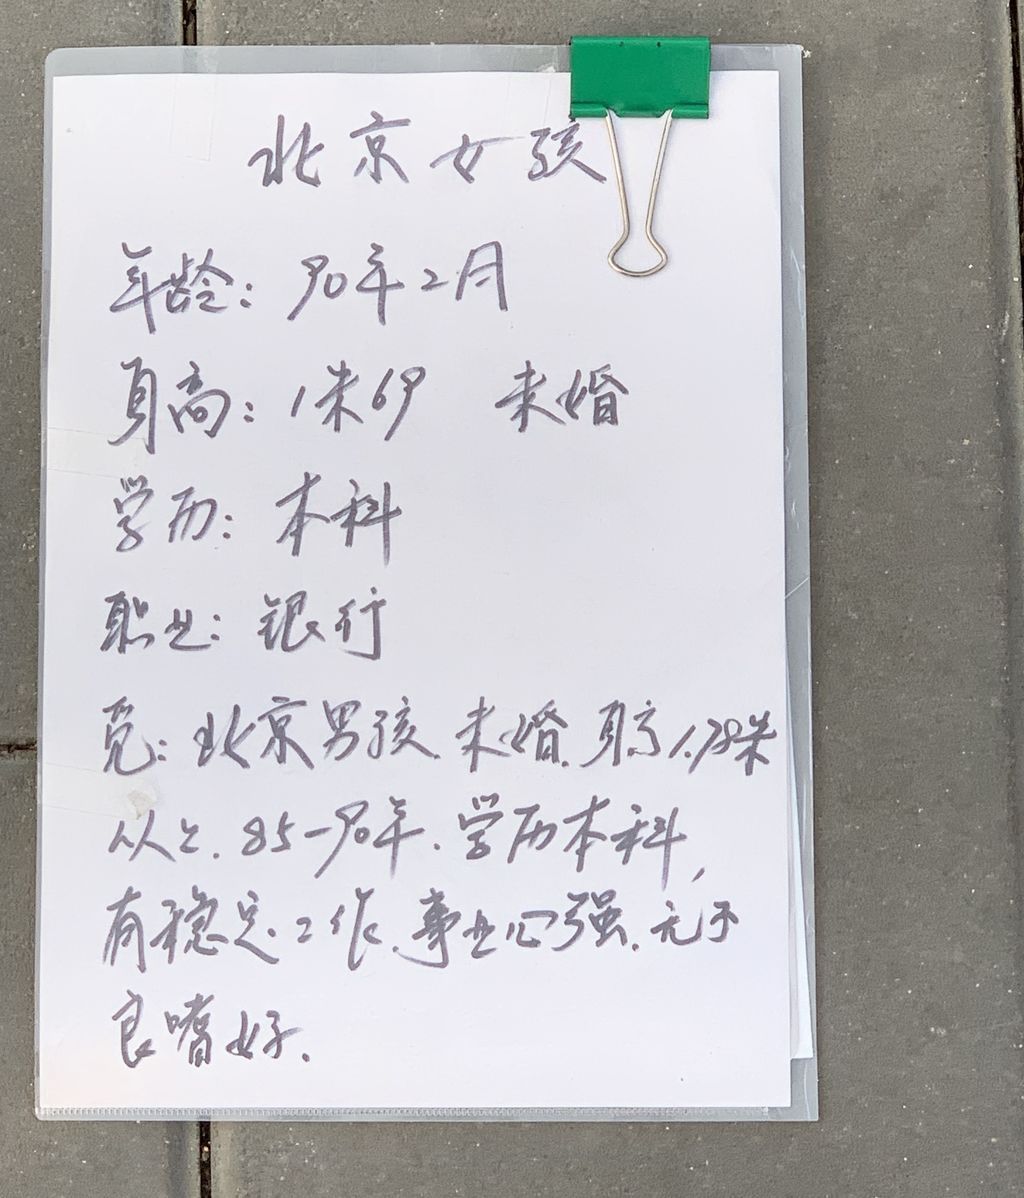 北京女孩
年龄：90年2月
身高：1米69 未婚
学历：本科
职业：银行
觅：北京男孩、未婚、身高1.78米
以上、85-90年、学历本科，
有稳定工作、事业心强、无不
良嗜好.